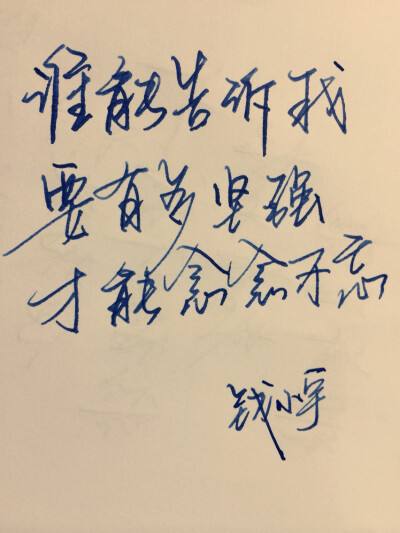 谁能告诉我
要有多坚强
才能念念不忘
钱小宇